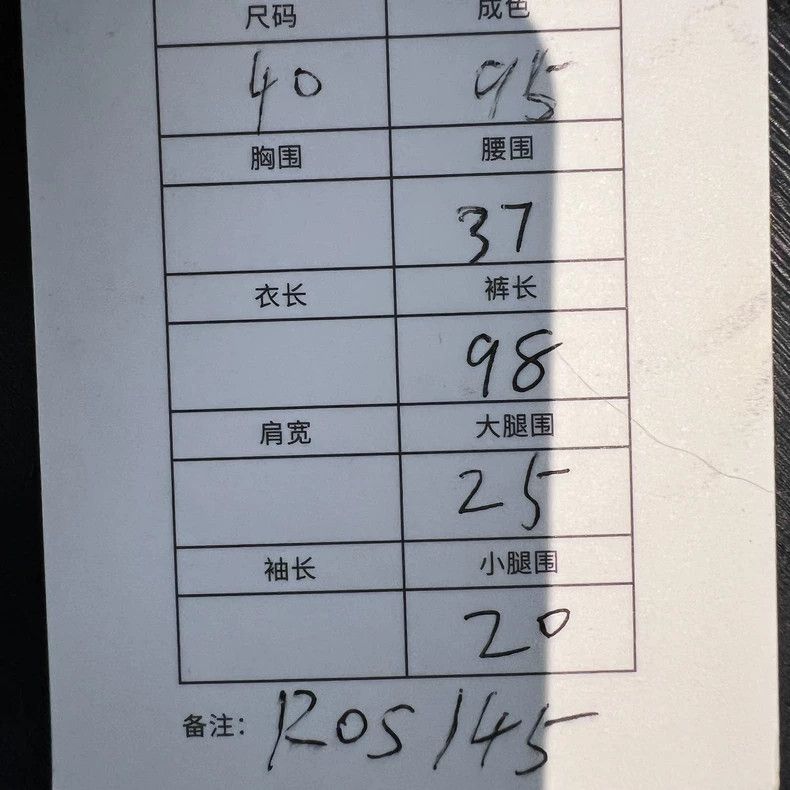 尺码 成色
40 95
胸围 腰围
37
衣长 裤长
98
肩宽 大腿围
25
袖长 小腿围
20
备注: ROS145